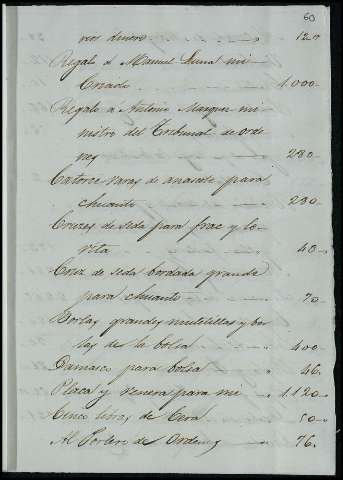 60
reos dinero " 120
Regalo á Manuel Luna mi
Criado. 1.000.
Regalo a Antonio Marquez mi-
nistro del Tribunal de orde-
nes 280.
Catorce varas de anascote para
280.
Cruzes de seda para frac y le-
vita 40.
Cruz de seda bordada grande
para 70.
Borlas grandes muletillas y bor-
las de la bolsa " 400.
Damasco para bolsa " 46.
Placa y venera para mi " 1.120.
Cinco libras de Cera " 50.
Al Portero de Ordenes " 76.